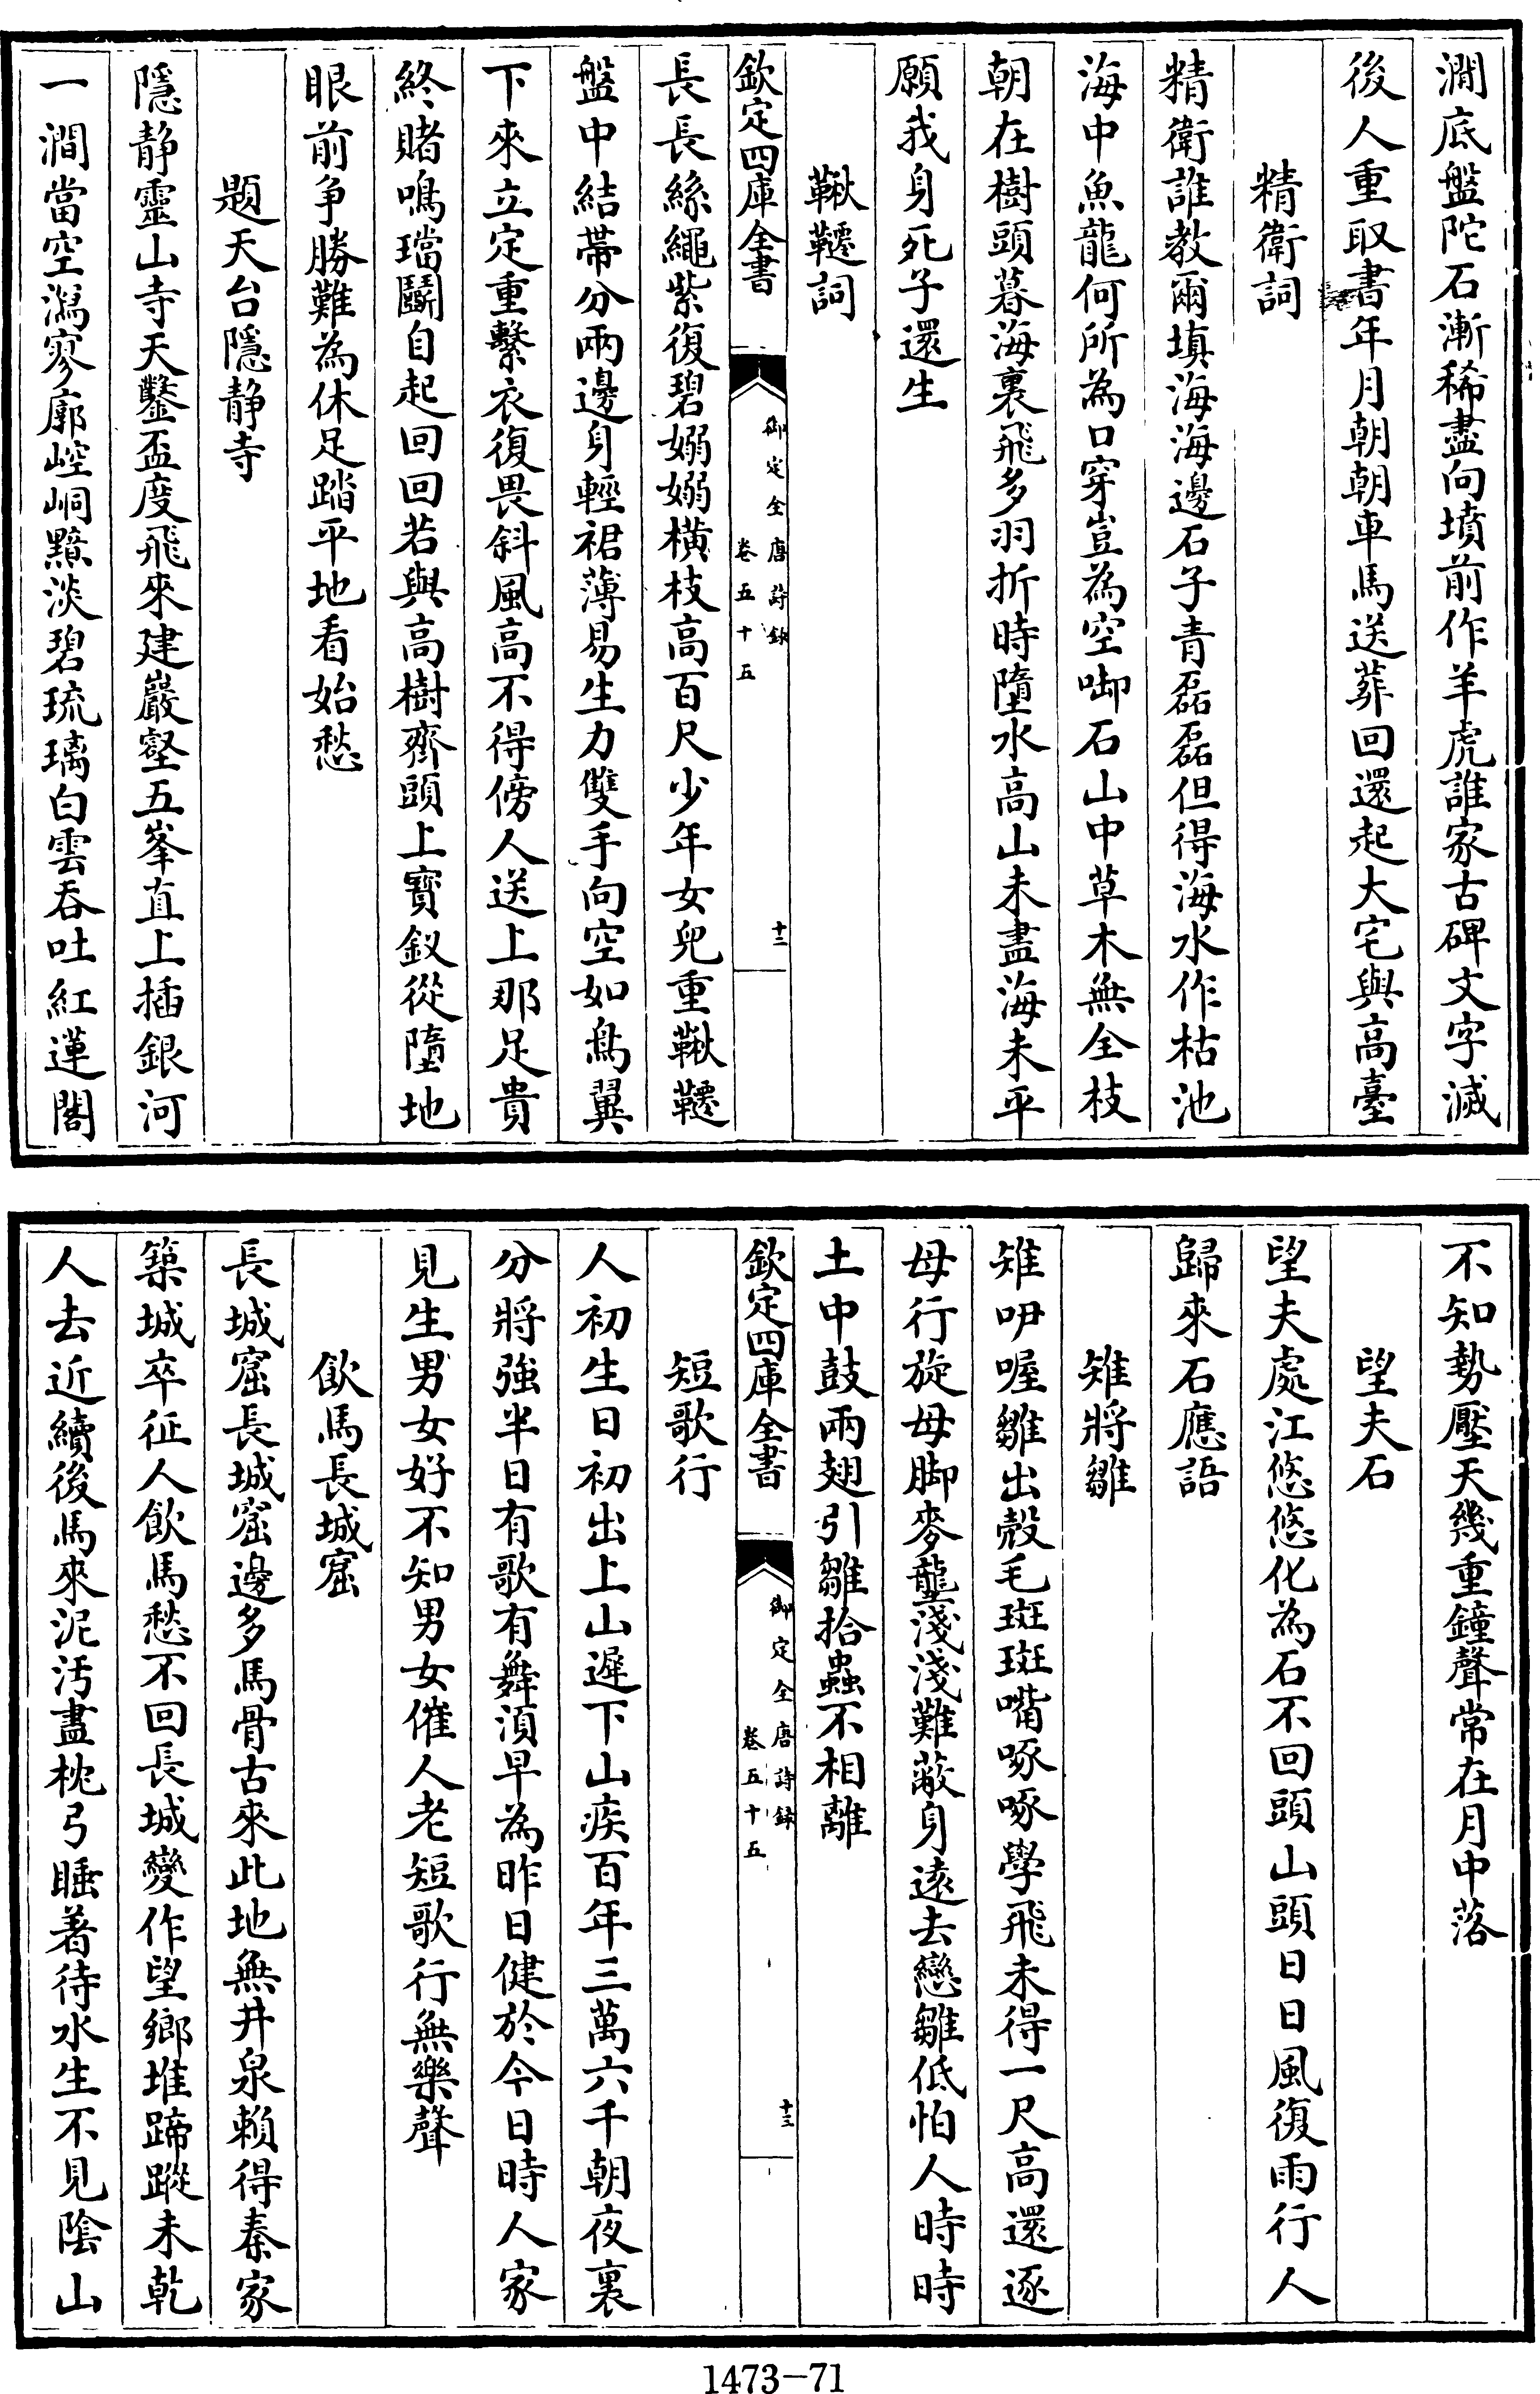 澗底盤陀石漸稀盡向墳前作羊虎誰家古碑文字滅
後人重取書年月朝朝車馬送葬回還起大宅與高臺
精衛詞
精衛誰教爾填海海邊石子青磊磊但得海水作枯池
海中魚龍何所為口穿豈為空啣石山中草木無全枝
朝在樹頭暮海裏飛多羽折時墮水高山未盡海未平
願我身死子還生
鞦韆詞
欽定四庫全書
御定全唐詩録
卷五十五
十二
長長絲繩紫復碧嫋嫋橫枝高百尺少年女兒重鞦韆
盤中結帶分兩邊身輕裙薄易生力雙手向空如鳥翼
下來立定重繫衣復畏斜風高不得傍人送上那足貴
終賭鳴璫鬭自起回回若與高樹齊頭上寶釵從墮地
眼前争勝難為休足踏平地看始愁
題天台隱静寺
隱静靈山寺天鑿盃度飛來建巖壑五峯直上插銀河
一澗當空瀉寥廓崆峒黯淡碧琉璃白雲吞吐紅蓮閣
不知勢壓天幾重鐘聲常在月中落
望夫石
望夫處江悠悠化為石不回頭山頭日日風復雨行人
歸來石應語
雉將雛
雉咿喔雛出殼毛斑斑嘴啄啄學飛未得一尺高還逐
母行旋母脚麥壟淺淺難蔽身遠去戀雛低怕人時時
土中鼓兩翅引雛拾蟲不相離
欽定四庫全書
御定全唐詩録
卷五十五
十三
短歌行
人初生日初出上山遲下山疾百年三萬六千朝夜裏
分將強半日有歌有舞須早為昨日健於今日時人家
見生男女好不知男女催人老短歌行無樂聲
飲馬長城窟
長城窟長城窟邊多馬骨古來此地無井泉賴得秦家
築城卒征人飲馬愁不回長城變作望鄉堆蹄蹤未乾
人去近續後馬來泥汚盡枕弓睡著待水生不見陰山
1473-71